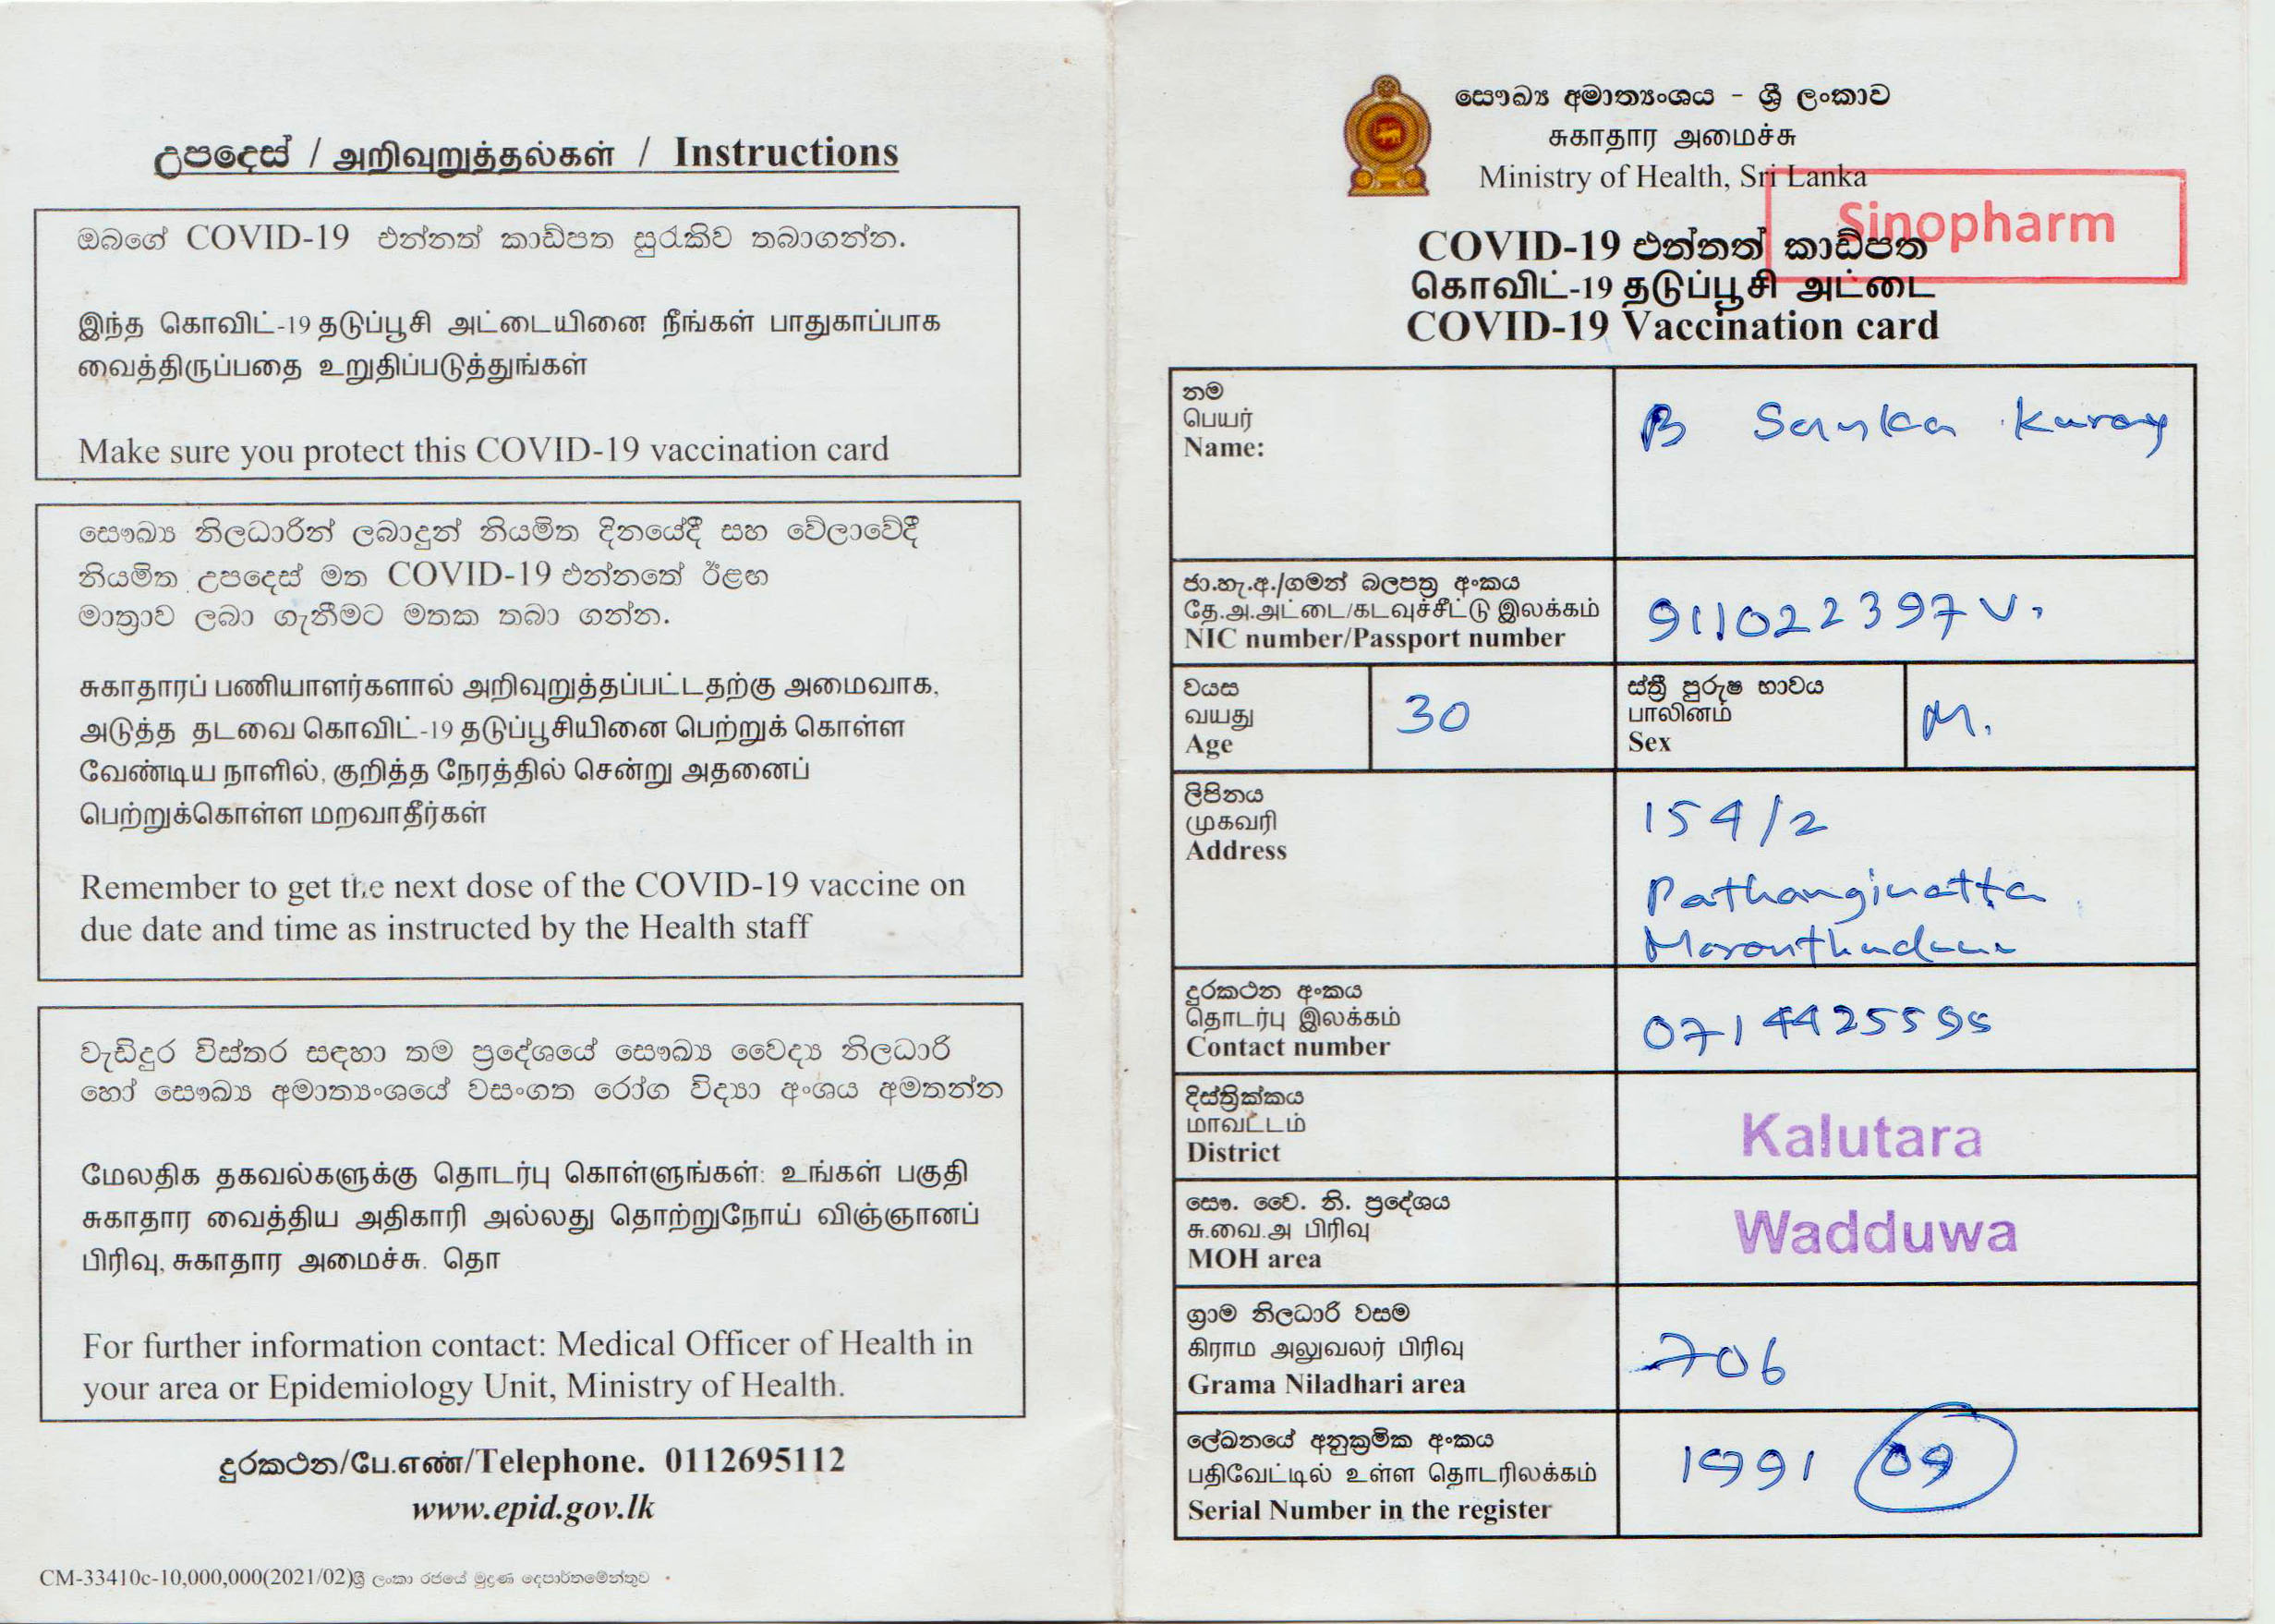 උපදෙස් / அறிவுறுத்தல்கள் / Instructions
ඔබගේ COVID-19 එන්නත් කාඩ්පත සුරැකිව තබාගන්න.
இந்த கொவிட்-19 தடுப்பூசி அட்டையினை நீங்கள் பாதுகாப்பாக
வைத்திருப்பதை உறுதிப்படுத்துங்கள்
Make sure you protect this COVID-19 vaccination card
සෞඛ්‍ය නිලධාරීන් ලබාදුන් නියමිත දිනයේදී සහ වේලාවේදී
නියමිත උපදෙස් මත COVID-19 එන්නතේ ඊළඟ
මාත්‍රාව ලබා ගැනීමට මතක තබා ගන්න.
சுகாதாரப் பணியாளர்களால் அறிவுறுத்தப்பட்டதற்கு அமைவாக,
அடுத்த தடவை கொவிட்-19 தடுப்பூசியினை பெற்றுக் கொள்ள
வேண்டிய நாளில், குறித்த நேரத்தில் சென்று அதனைப்
பெற்றுக்கொள்ள மறவாதீர்கள்
Remember to get the next dose of the COVID-19 vaccine on
due date and time as instructed by the Health staff
වැඩිදුර විස්තර සඳහා තම ප්‍රදේශයේ සෞඛ්‍ය වෛද්‍ය නිලධාරී
හෝ සෞඛ්‍ය අමාත්‍යංශයේ වසංගත රෝග විද්‍යා අංශය අමතන්න
மேலதிக தகவல்களுக்கு தொடர்பு கொள்ளுங்கள்: உங்கள் பகுதி
சுகாதார வைத்திய அதிகாரி அல்லது தொற்றுநோய் விஞ்ஞானப்
பிரிவு, சுகாதார அமைச்சு. தொ
For further information contact: Medical Officer of Health in
your area or Epidemiology Unit, Ministry of Health.
දුරකථන/பே.எண்/Telephone. 0112695112
www.epid.gov.lk
CM-33410c-10,000,000(2021/02)ශ්‍රී ලංකා රජයේ මුද්‍රණ දෙපාර්තමේන්තුව
සෞඛ්‍ය අමාත්‍යංශය - ශ්‍රී ලංකාව
சுகாதார அமைச்சு
Ministry of Health, Sri Lanka
Sinopharm
COVID-19 එන්නත් කාඩ්පත
கொவிட்-19 தடுப்பூசி அட்டை
COVID-19 Vaccination card
නම
பெயர்
Name:
B Sanka
ජා.හැ.අ./ගමන් බලපත්‍ර අංකය
தே.அ.அட்டை/கடவுச்சீட்டு இலக்கம்
NIC number/Passport number
911022397V.
වයස
வயது
Age
30
ස්ත්‍රී පුරුෂ භාවය
பாலினம்
Sex
M.
ලිපිනය
முகவரி
Address
154/2
දුරකථන අංකය
தொடர்பு இலக்கம்
Contact number
දිස්ත්‍රික්කය
மாவட்டம்
District
Kalutara
සෞ. වෛ. නි. ප්‍රදේශය
சு.வை.அ பிரிவு
MOH area
Wadduwa
ග්‍රාම නිලධාරී වසම
கிராம அலுவலர் பிரிவு
Grama Niladhari area
706
ලේඛනයේ අනුක්‍රමික අංකය
பதிவேட்டில் உள்ள தொடரிலக்கம்
Serial Number in the register
1991 09